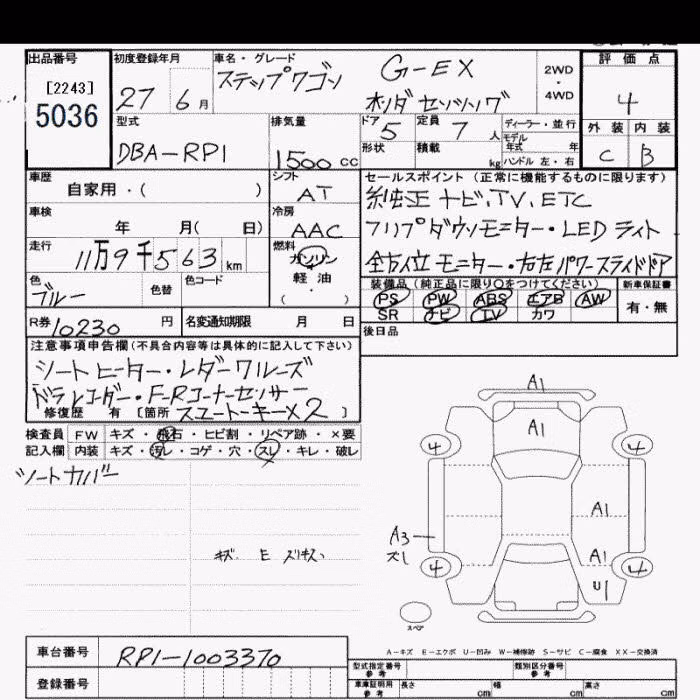 出品番号
[2243]
5036
初度登録年月
27 6 月
車名・グレード
ステップワゴン G-EX
ホンダ センシング
2WD
・
4WD
評価点
4
型式
DBA-RP1
排気量
1500 cc
ドア
5
定員
7 人
形状
積載
kg
ディーラー・並行
モデル
年式 年
ハンドル 左・右
外装 内装
C B
車歴
自家用・( )
シフト
AT
車検
年 月( 日)
冷房
AAC
走行
11万9千563 km
燃料
ガソリン
・
軽油
( )
色
ブルー
色替
色コード
R券 10230 円
名変通知期限 月 日
セールスポイント(正常に機能するものに限ります)
純正ナビ、TV、ETC
フリップダウンモニター・LEDライト
全方位モニター・右左パワースライドドア
装備品(純正品に限り○をつけてください)
PS PW ABS エアB AW
SR ナビ TV カワ
新車保証書
有・無
後日品
注意事項申告欄(不具合内容等は具体的に記入して下さい)
シートヒーター・レダークルーズ
ドラレコーダー・F-Rコーナーセンサー
修復歴 有 [箇所 スマートキーX2 ]
検査員 FW キズ・飛石・ヒビ割・リペア跡・×要
記入欄 内装 キズ・汚レ・コゲ・穴・スレ・キレ・破レ
シートカバー
キズ E スリキズ
A1
A1
4 4
A1
A3
スレ
A1
4 4
U1
スペア
A-キズ E-エクボ U-凹み W-補修跡 S-サビ C-腐食 XX-交換済
車台番号 RP1-1003370
登録番号
型式指定番号
参考
類別区分番号
参考
車庫証明用
参考
長さ cm 幅 cm 高さ cm